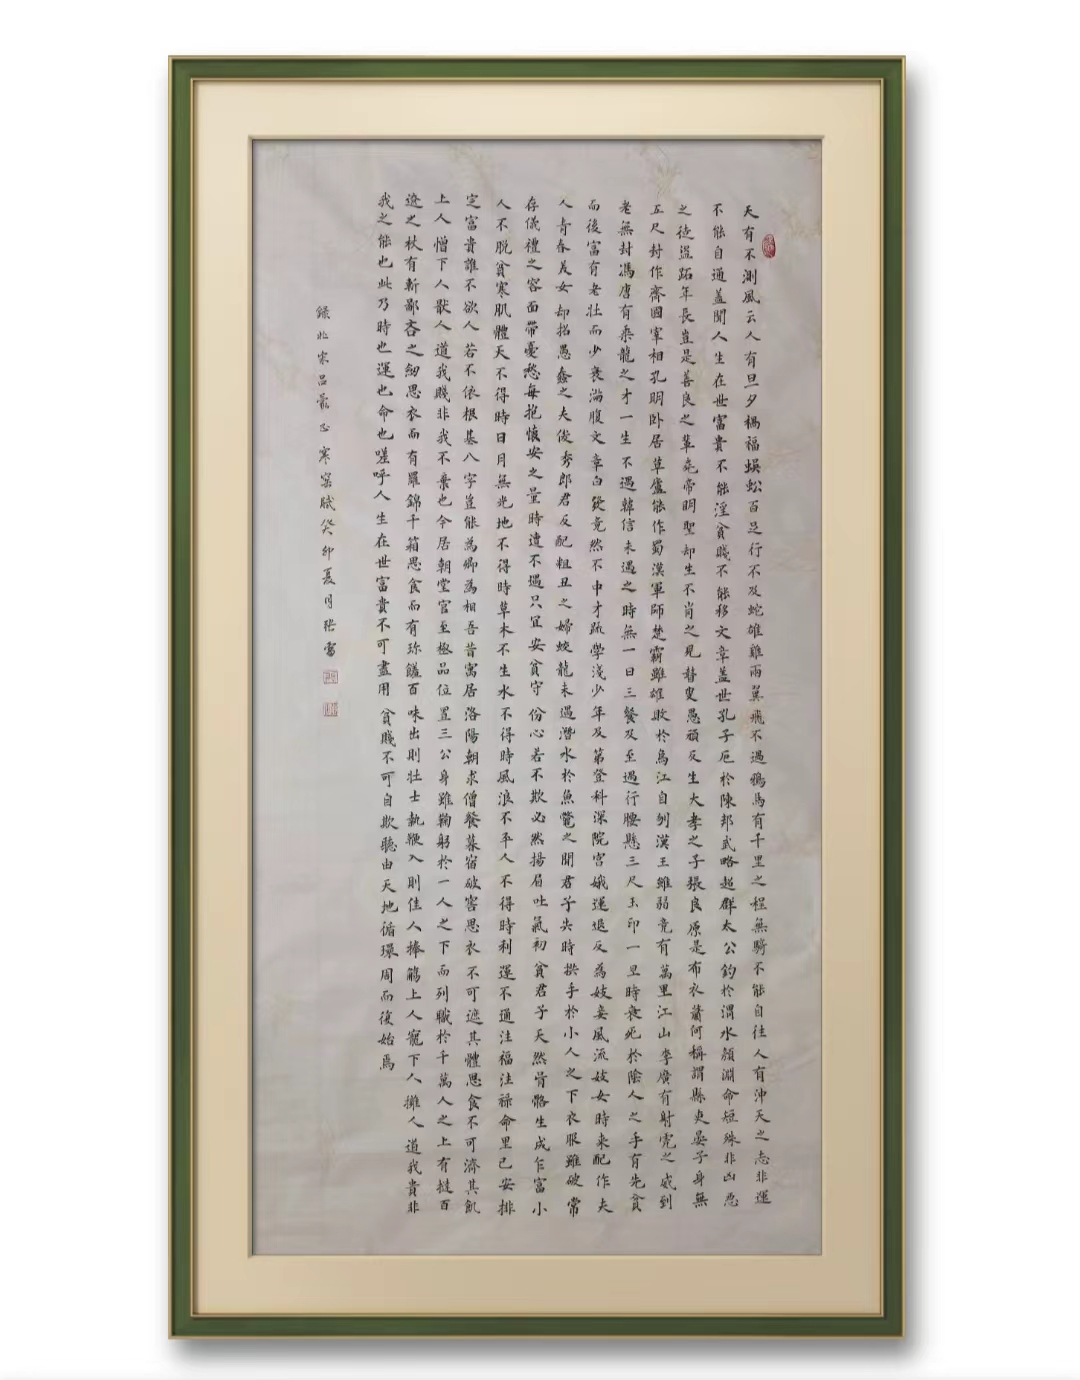 天有不測風云人有旦夕禍福蜈蚣百足行不及蛇雄雞兩翼飛不過鴉馬有千里之程無騎不能自往人有沖天之志非運
不能自通蓋聞人生在世富貴不能淫貧賤不能移文章蓋世孔子厄於陳邦武略超群太公釣於渭水顏淵命短殊非凶惡
之徒盜跖年長豈是善良之輩堯帝明聖却生不肖之兒瞽叟愚頑反生大孝之子張良原是布衣蕭何稱謂縣吏晏子身無
五尺封作齊國宰相孔明卧居草廬能作蜀漢軍師楚霸雖雄敗於烏江自刎漢王雖弱竟有萬里江山李廣有射虎之威到
老無封馮唐有乘龍之才一生不遇韓信未遇之時無一日三餐及至遇行腰懸三尺玉印一旦時衰死於陰人之手有先貧
而後富有老壯而少衰滿腹文章白發竟然不中才疏學淺少年及第登科深院宮娥運退反為妓妾風流妓女時来配作夫
人青春美女却招愚蠢之夫俊秀郎君反配粗丑之婦蛟龍未遇潛水於魚鱉之間君子失時拱手於小人之下衣服雖破常
存儀禮之容面帶憂愁每抱懷安之量時遭不遇只宜安貧守份心若不欺必然揚眉吐氣初貧君子天然骨骼生成乍富小
人不脫貧寒肌體天不得時日月無光地不得時草木不生水不得時風浪不平人不得時利運不通注福注祿命里已安排
定富貴誰不欲人若不依根基八字豈能為卿為相吾昔寓居洛陽朝求僧餐暮宿破窖思衣不可遮其體思食不可濟其飢
上人憎下人厭人道我賤非我不棄也今居朝堂官至極品位置三公身雖鞠躬於一人之下而列職於千萬人之上有撻百
遼之杖有斬鄙吝之劍思衣而有羅錦千箱思食而有珍饈百味出則壮士執鞭入則佳人捧觴上人寵下人擁人道我貴非
我之能也此乃時也運也命也嗟呼人生在世富貴不可盡用貧賤不可自欺聽由天地循環周而復始焉
錄北宋呂蒙正寒窑賦癸卯夏月張雷